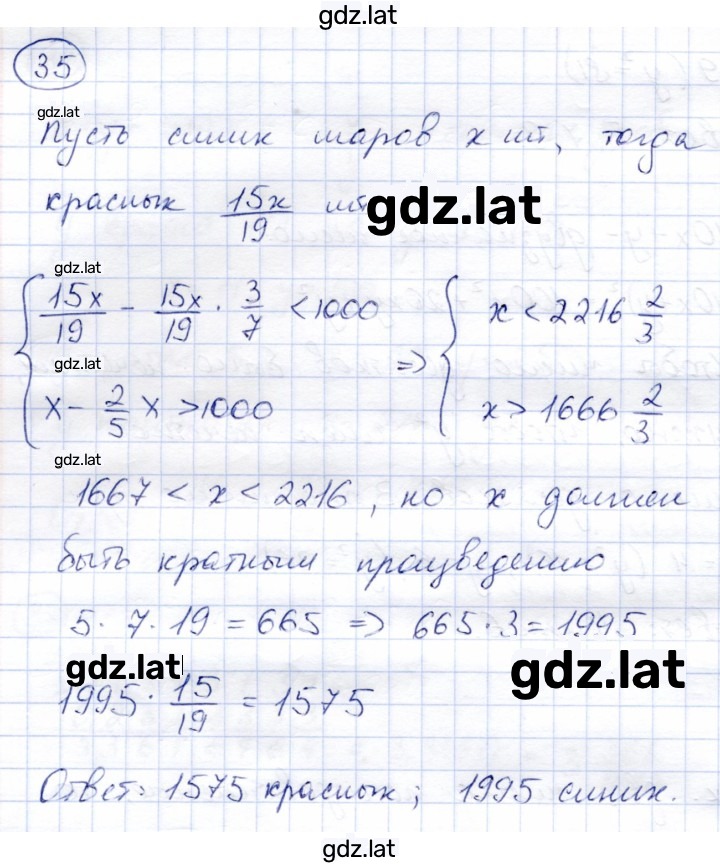 gdz.lat
35
gdz.lat
Пусть синих шаров x шт, тогда
красных 15x/19 шт gdz.lat
gdz.lat
{ 15x/19 - 15x/19 · 3/7 < 1000
gdz.lat
x - 2/5 x > 1000
=> { x < 2216 2/3
x > 1666 2/3
gdz.lat
1667 < x < 2216, но x должен
быть кратным произведению
5 · 7 · 19 = 665 => 665 · 3 = 1995
gdz.lat gdz.lat
1995 · 15/19 = 1575
Ответ: 1575 красных; 1995 синих.
gdz.lat